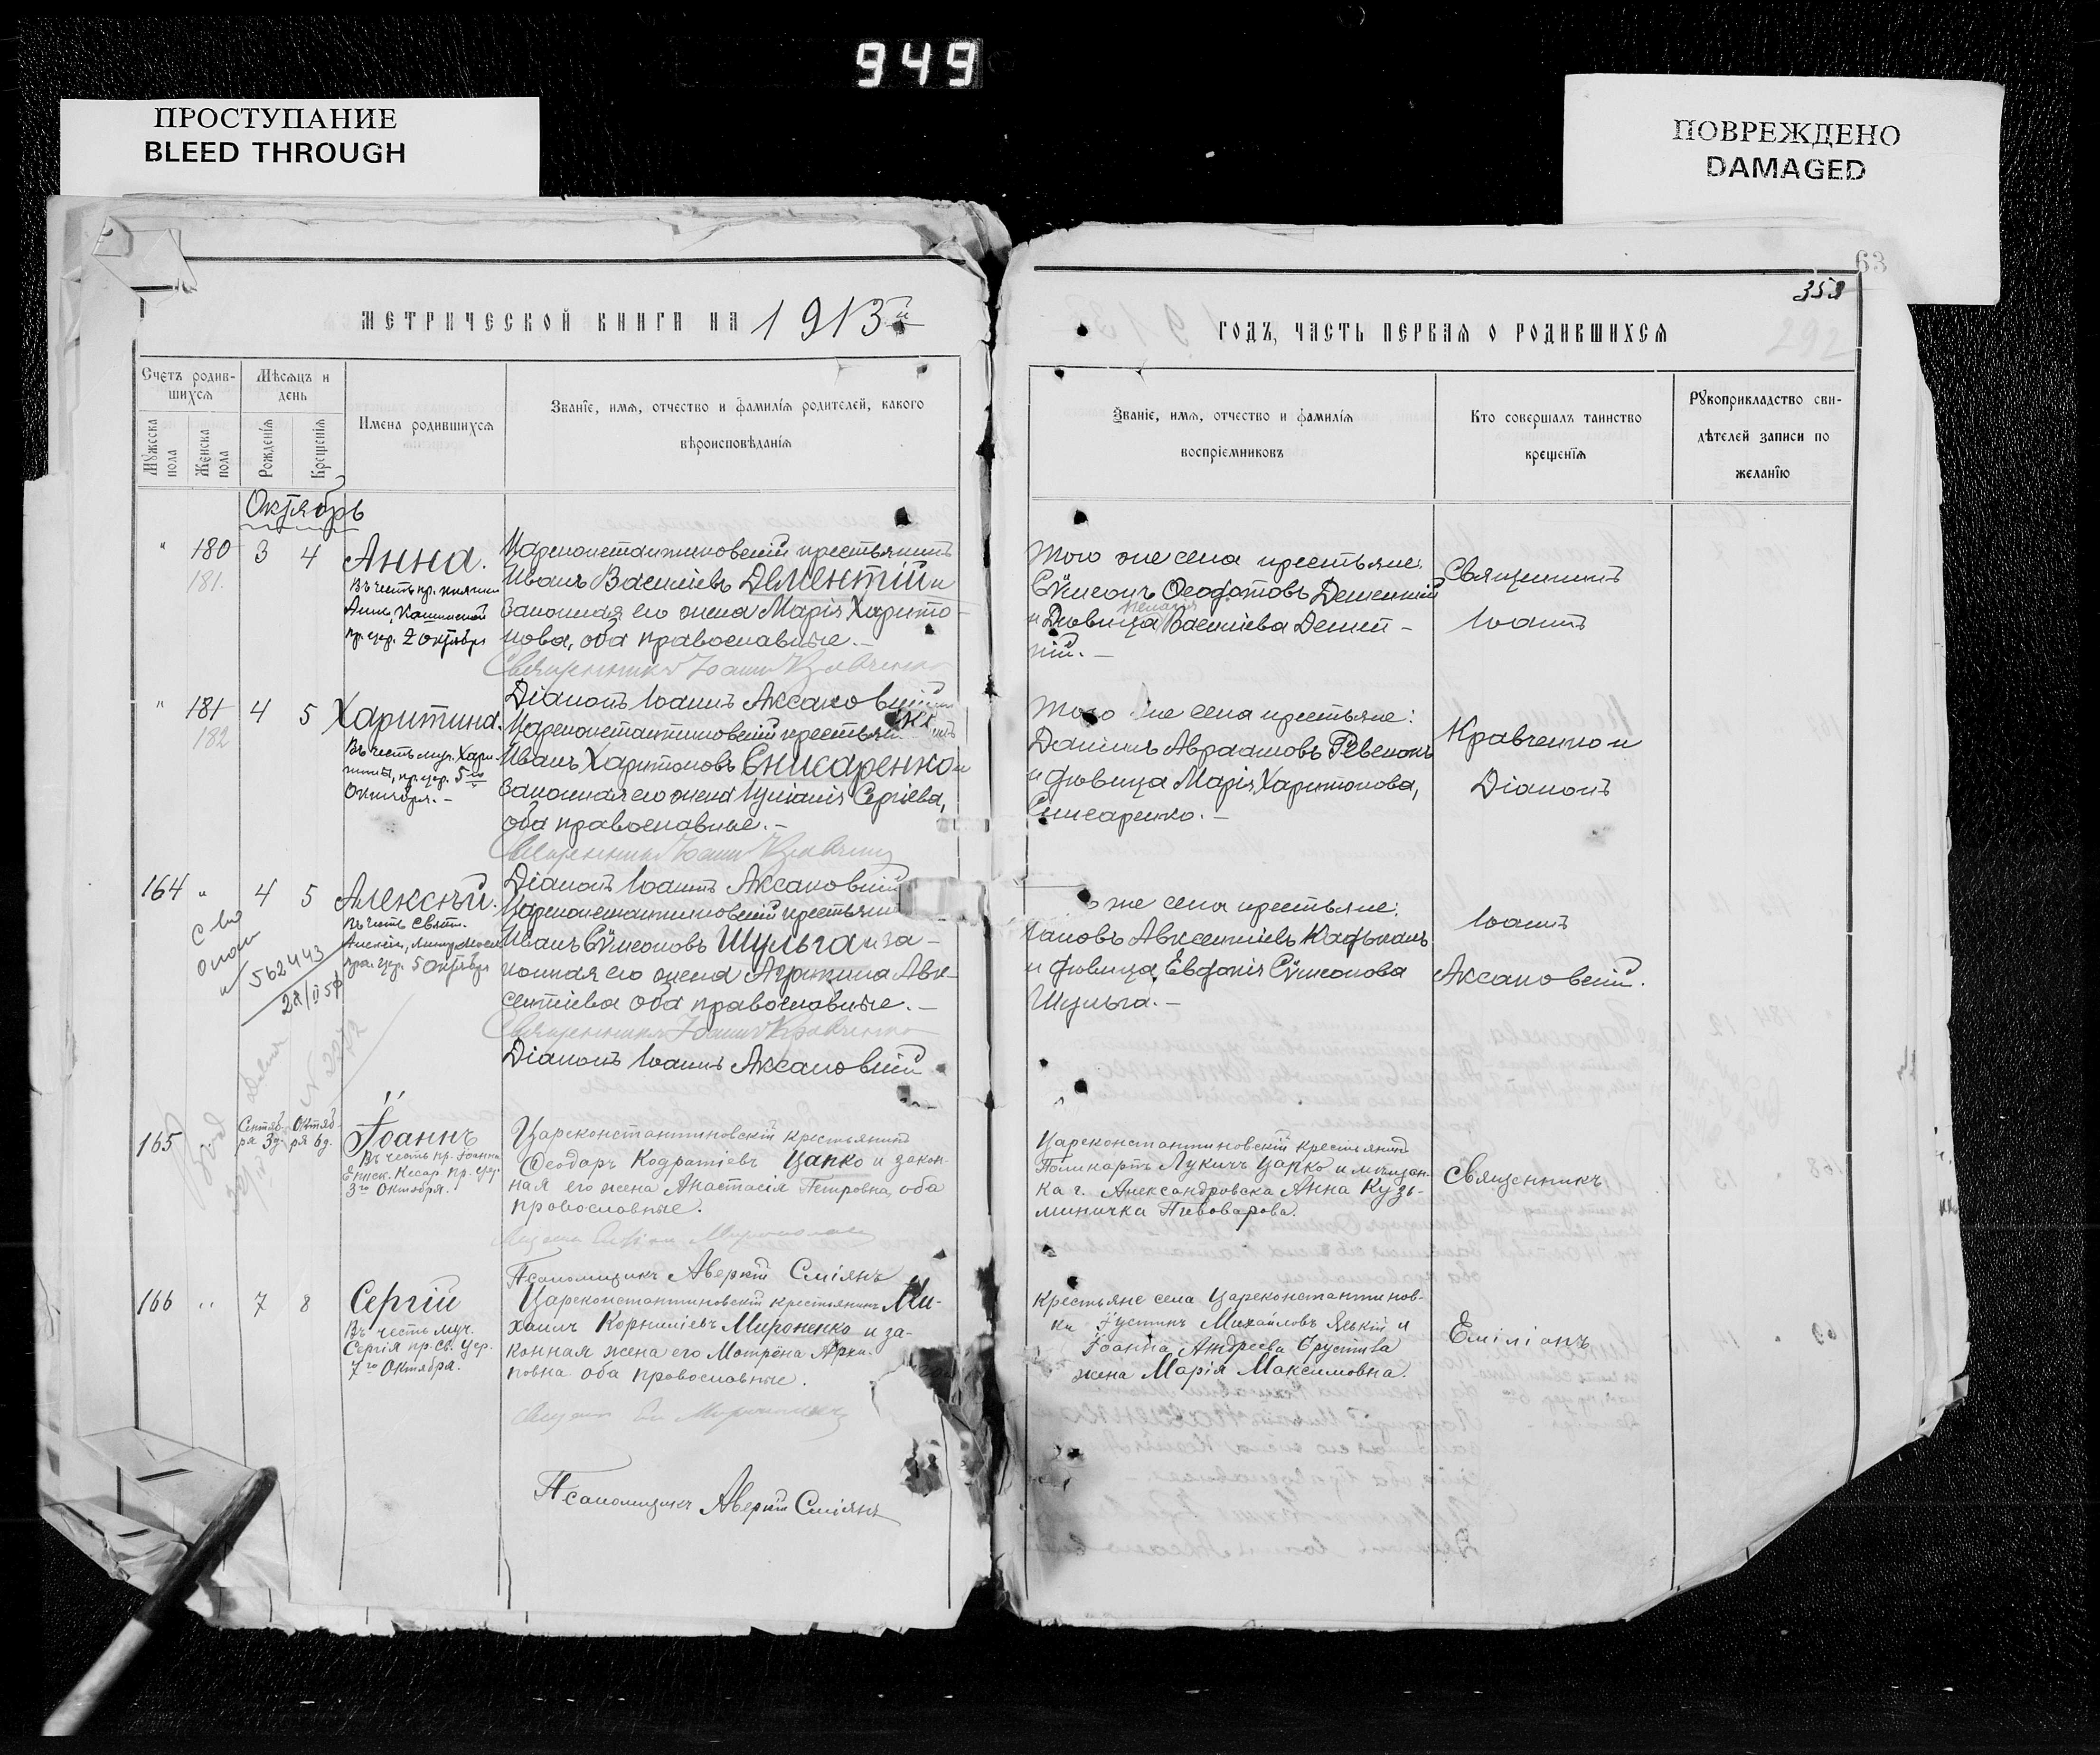 949
ПРОСТУПАНИЕ
BLEED THROUGH
ПОВРЕЖДЕНО
DAMAGED
63
353
292
МЕТРИЧЕСКОЙ КНИГИ НА 1913й
ГОДЪ, ЧАСТЬ ПЕРВАЯ О РОДИВШИХСЯ
Счетъ родив-
шихся
Мужеска
пола
Женска
пола
Мѣсяцъ и
день
Рожденія
Крещенія
Имена родившихся
Званіе, имя, отчество и фамилія родителей, какого
вѣроисповѣданія
Званіе, имя, отчество и фамилія
воспріемниковъ
Кто совершалъ таинство
крещенія
Рукоприкладство сви-
дѣтелей записи по
желанію
Октябрь
" 180 3 4
181.
Анна.
Въ честь пр. княгини
Анны Кашинской
пр. цер. 2 октября
Цареконстантиновскій крестьянинъ
Иванъ Васильевъ Дементій и
Законная его жена Марія Харито-
нова, оба православные.-
Священникъ Іоаннъ Кравченко
Діаконъ Іоаннъ Аксаковскій
Того же села крестьяне:
Сѵмеонъ Ѳеофатовъ Дементій
и Дѣвица Васильева Демен-
тій.-
Священникъ
Іоаннъ
" 181 4 5
182
Харитина.
Въ честь муч. Хари-
тины, пр. цер. 5го
Октября.-
Цареконстантиновскій крестьянинъ
Иванъ Харитоновъ Снисаренко и
Законная его жена Іуліанія Сергіева,
оба православные.-
Священникъ Іоаннъ Кравченко
Діаконъ Іоаннъ Аксаковскій
Того же села крестьяне:
Даніилъ Авраамовъ Ревенокъ
и дѣвица Марія Харитонова,
Снисаренко.-
Кравченко и
Діаконъ
164 " 4 5
Алексѣй.
Въ честь Свят.
Алексія, митр. Моск.
пра. цер. 5 октября
562443
Цареконстантиновскій крестьянинъ
Иванъ Сѵмеоновъ Шульга и за-
конная его жена Агрипина Авк-
сентіева оба православные.-
Священникъ Іоаннъ Кравченко
Діаконъ Іоаннъ Аксаковскій
же села крестьяне:
Авксентіевъ
и дѣвица Евфанія Сѵмеонова
Шульга.-
Іоаннъ
Аксаковскій.
165
Сентяб- Октяб-
ря 3д. ря 6д.
Іоаннъ
Въ честь пр. Іоанна
Еписк. Кесар. пр. цер.
3го Октября.
Цареконстантиновскій крестьянинъ
Ѳеодоръ Кодратіевъ Цапко и закон-
ная его жена Анастасія Петровна, оба
провославные.
Псаломщикъ Аверкій Сміянъ
Цареконстантиновскій крестьянинъ
Поликарпъ Лукичъ Цапко и мѣщан-
ка г. Александровска Анна Кузь-
минична Пивоварова.
Священникъ
166 " 7 8
Сергій
Въ честь муч.
Сергія пр. св. цер.
7го Октября.
Цареконстантиновскій крестьянинъ Ми-
хаилъ Корниліевъ Мироненко и за-
конная жена его Мотрона
повна оба провославные.
Псаломщикъ Аверкій Сміянъ
Крестьяне села Цареконстантинов-
ки Густинъ Михайловъ и
Іоанна Андреева
жена Марія Максимовна.
Емиліанъ